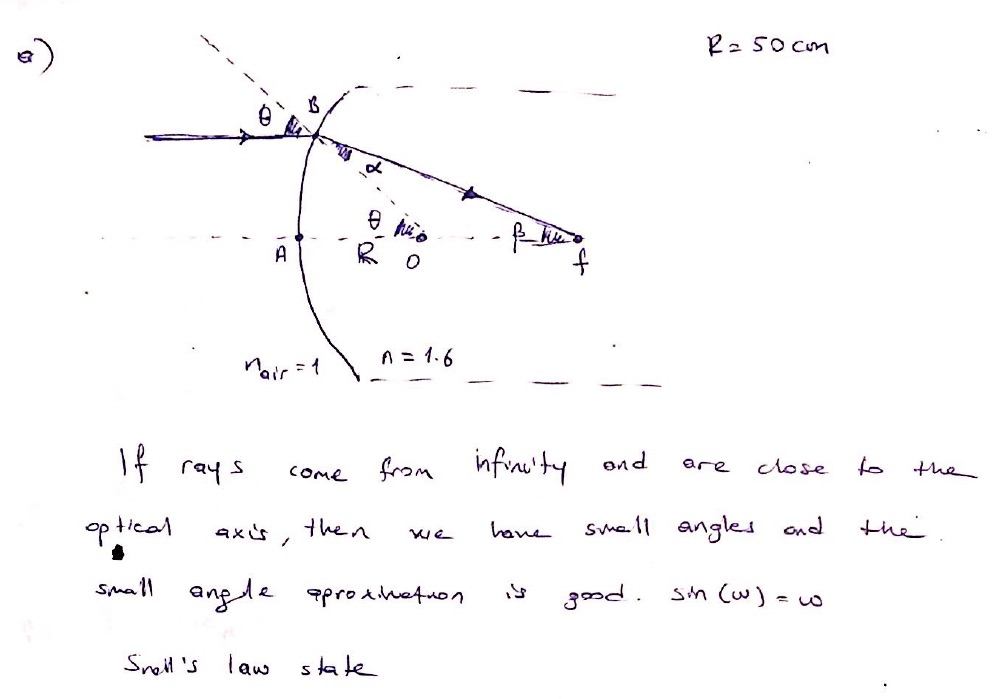 a)
R = 50 cm
θ
B
α
θ
β
A
R
O
f
n air = 1
n = 1.6
If rays come from infinity and are close to the
optical axis, then we have small angles and the
small angle aproximation is good. sin (ω) = ω
Snell's law state